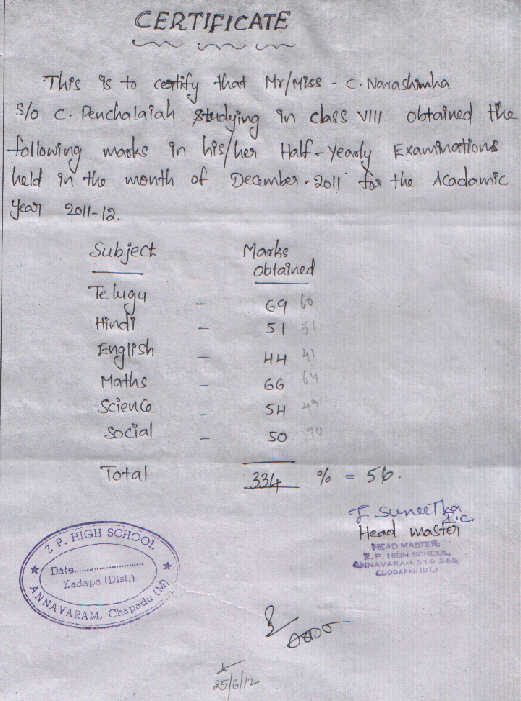 CERTIFICATE
This is to certify that Mr/Miss - C. Narashimha
S/o C. Penchalaiah studying in class VIII obtained the
following marks in his/her Half-Yearly Examinations
held in the month of December-2011 for the Acadamic
year 2011-12.
Subject Marks obtained
Telugu - 69 60
Hindi - 51 51
English - 44 41
Maths - 66 64
Science - 54 49
Social - 50
Total 334 % = 56.
Head master
HEAD MASTER,
Z.P. HIGH SCHOOL,
Z.P. HIGH SCHOOL
Date
Kadapa (Dist.)
ANNAVARAM, Chapadu (M)
25/6/12